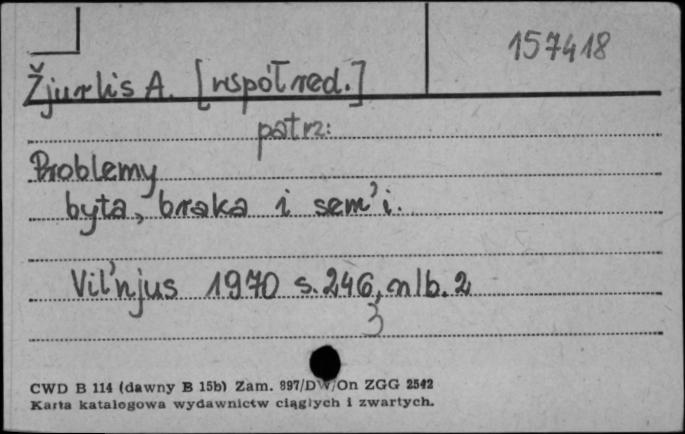 157418
Žjurlis A. [współred.]
patrz:
Problemy
byta, braka i sem'i.
Vil'njus 1970 s. 246, nlb. 2
3
CWD B 114 (dawny B 15b) Zam. 897/DW/On ZGG 2542
Karta katalogowa wydawnictw ciągłych i zwartych.